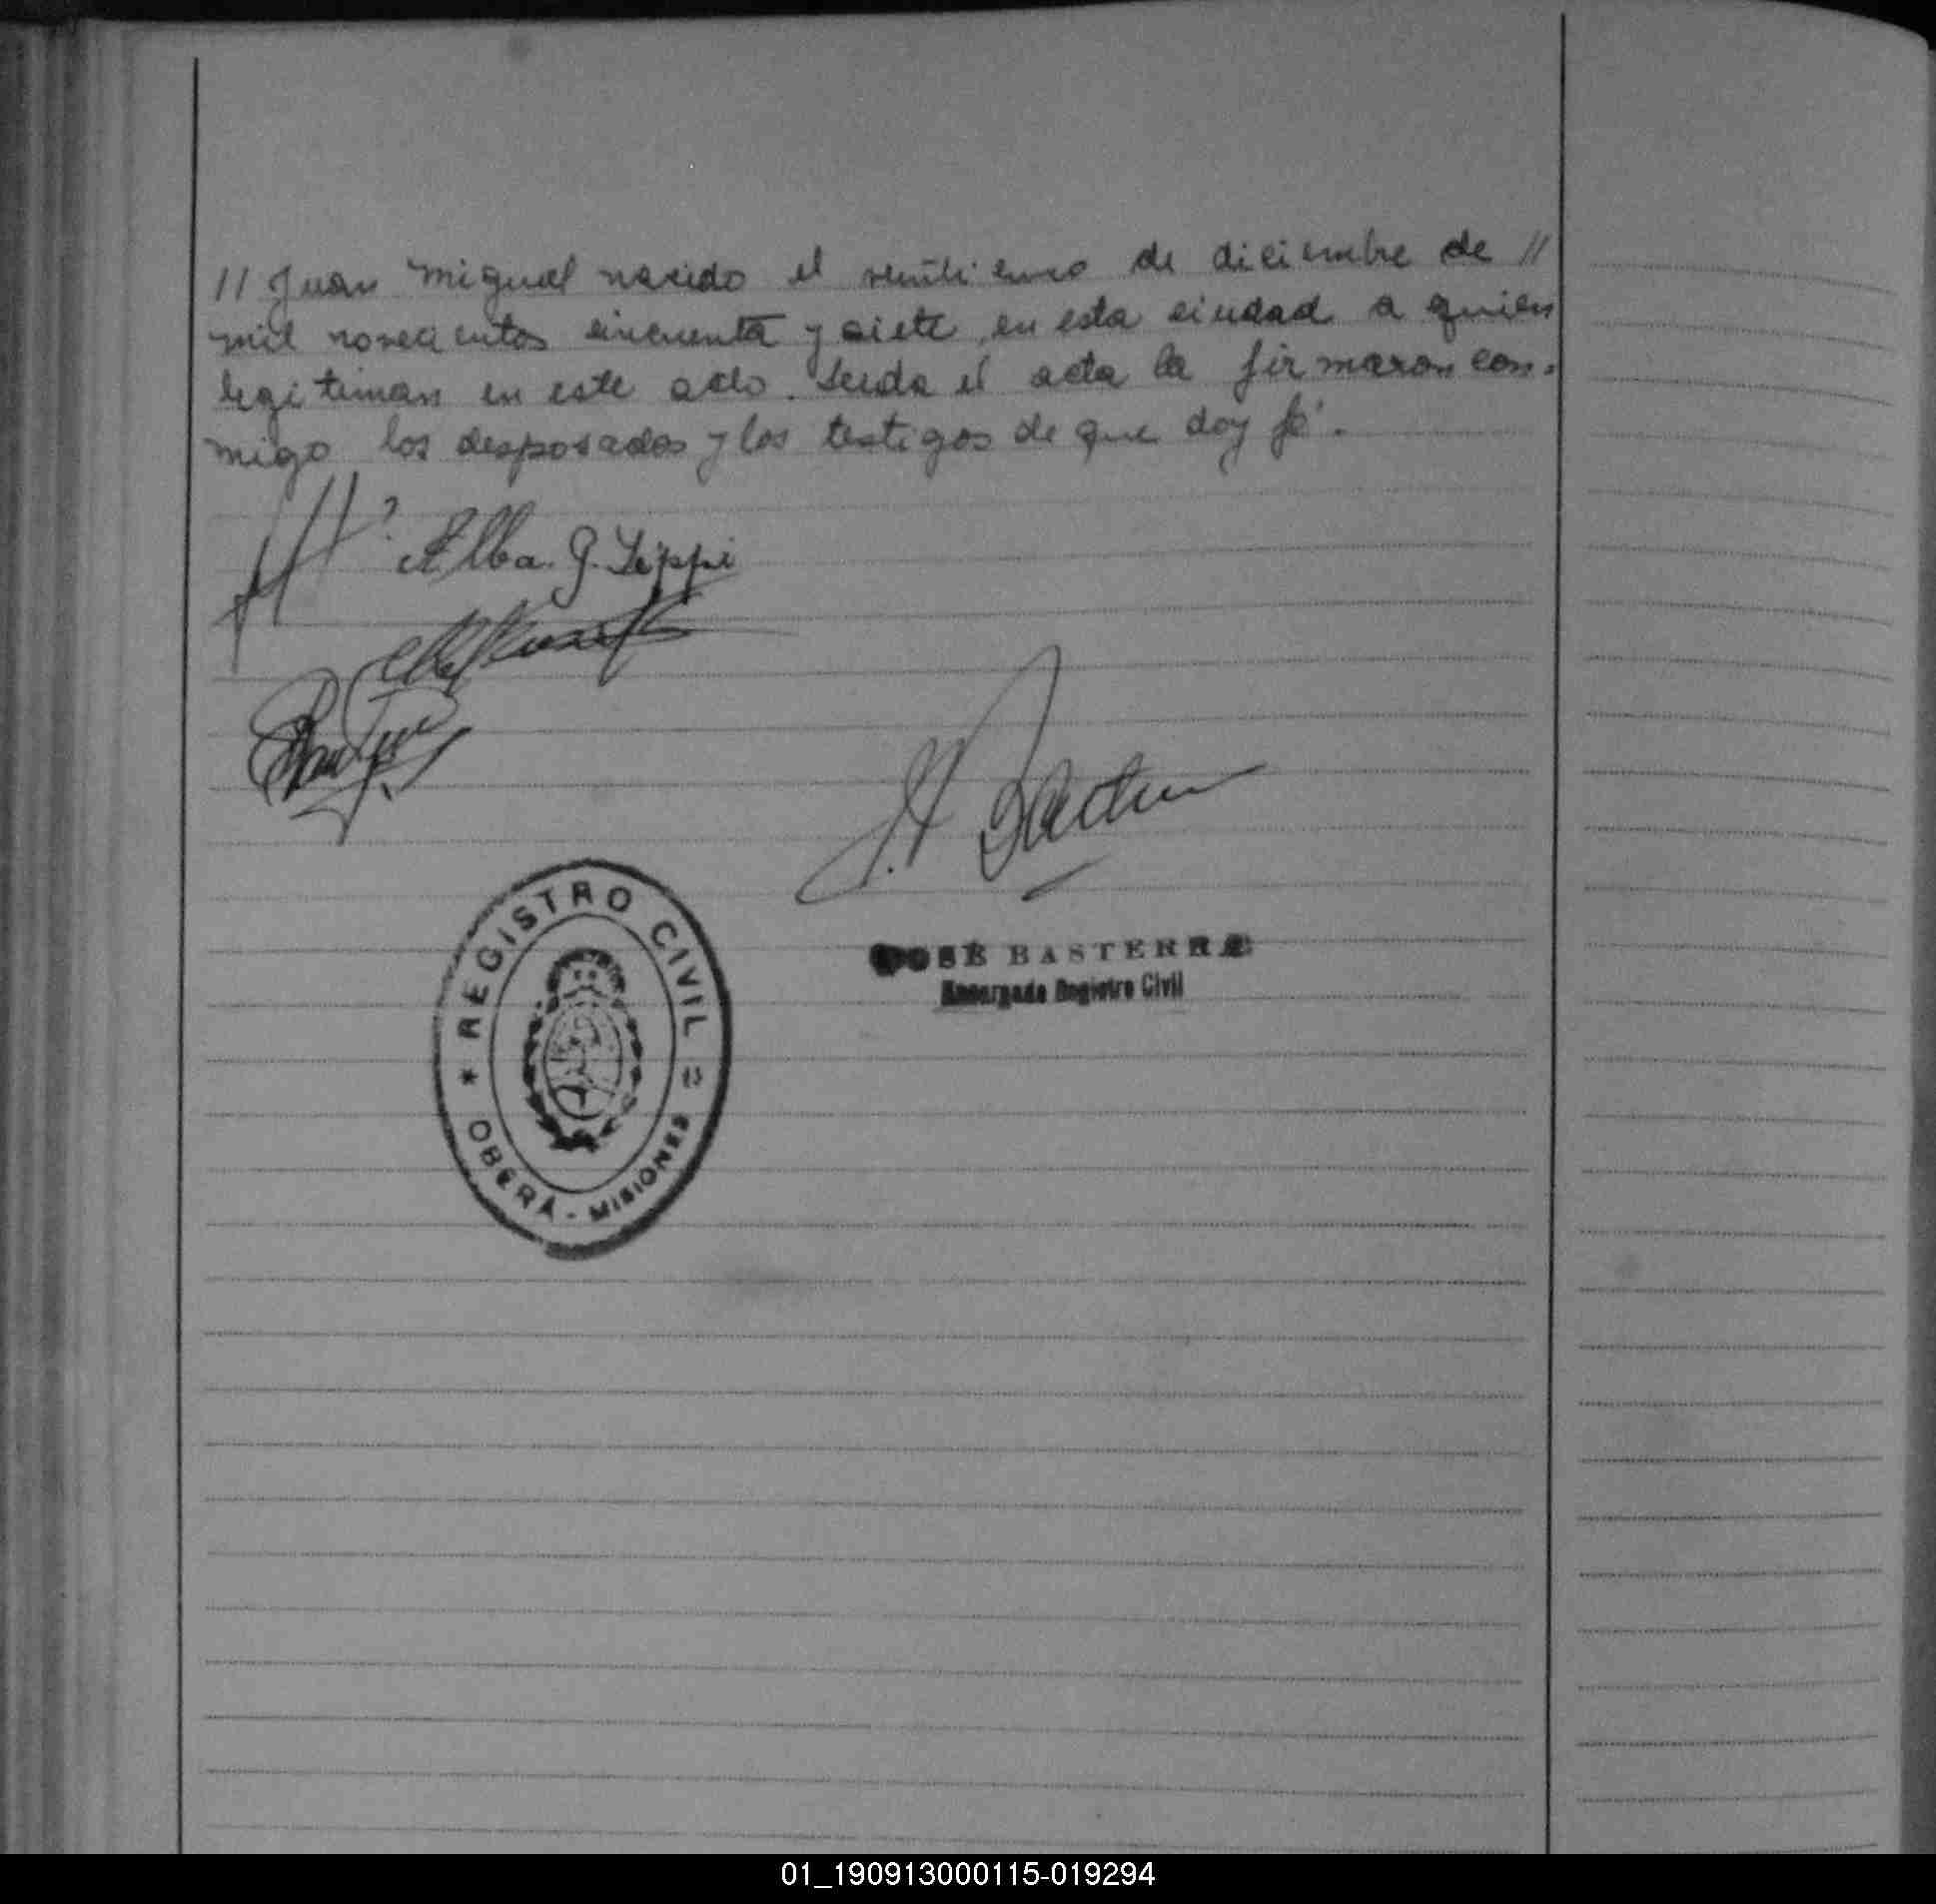 // Juan Miguel nacido el veinticinco de diciembre de //
mil novecientos cincuenta y siete, en esta ciudad a quien
legitiman en este acto. Leida el acta la firmaron con-
migo los desposados y los testigos de que doy fé.
Alba. G.
REGISTRO CIVIL
JOSÉ BASTERRA
Encargado Registro Civil
OBERÁ - MISIONES
01_190913000115-019294